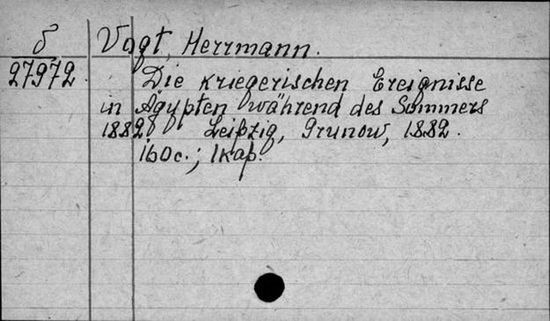 б
27972.
Vogt, Herrmann.
Die kriegerischen Ereignisse
in Ägypten während des Sommers
1882. Leipzig, Grunow, 1882.
160 с.; 1 кар.